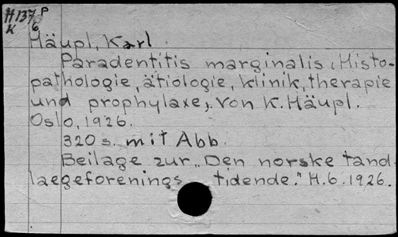 H 137 P
K 6
Häupl, Karl.
Paradentitis marginalis (Histo-
pathologie, ätiologie, klinik, therapie
und prophylaxe). Von K. Häupl.
Oslo, 1926.
320 s. mit Abb.
Beilage zur „Den norske tand-
laegeforenings tidende." H.6. 1926.